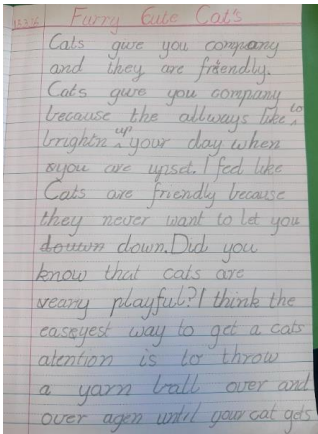 Furry Cute Cat's
Cats give you company
and they are friendly.
Cats give you company
because the allways like to
brightn up your day when
you are upset. I feel like
Cats are friendly because
they never want to let you
down. Did you
know that cats are
veary playful? I think the
easeyest way to get a cats
atention is to throw
a yarn ball over and
over agen until your cat gets